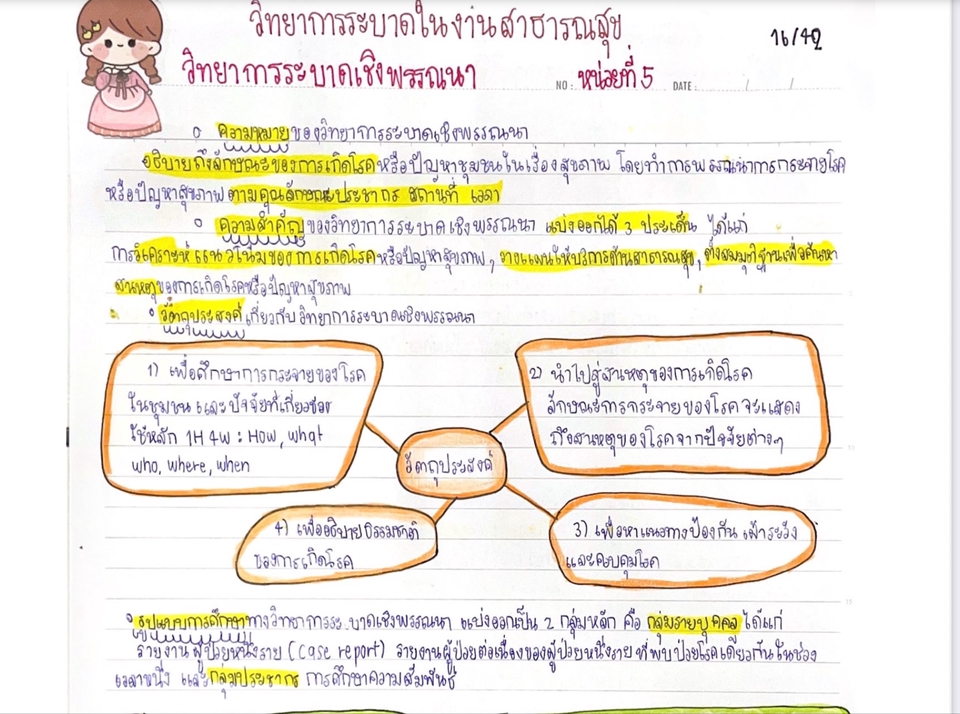 วิทยาการระบาดในงานสาธารณสุข
16/42
วิทยาการระบาดเชิงพรรณนา
NO : หน่วยที่ 5 DATE : / /
ความหมายของวิทยาการระบาดเชิงพรรณนา
อธิบายถึงลักษณะของการเกิดโรคหรือปัญหาชุมชนในเรื่องสุขภาพ โดยทำการพรรณนาการกระจายโรค
หรือปัญหาสุขภาพตามคุณลักษณะประชากร สถานที่ เวลา
ความสำคัญของวิทยาการระบาดเชิงพรรณนา แบ่งออกได้ 3 ประเด็น ได้แก่
การวิเคราะห์แนวโน้มของการเกิดโรคหรือปัญหาสุขภาพ, วางแผนให้บริการด้านสาธารณสุข, ตั้งสมมุติฐานเพื่อค้นหา
สาเหตุของการเกิดโรคหรือปัญหาสุขภาพ
วัตถุประสงค์เกี่ยวกับวิทยาการระบาดเชิงพรรณนา
1) เพื่อศึกษาการกระจายของโรค
ในชุมชน และปัจจัยที่เกี่ยวข้อง
ใช้หลัก 1H 4W : How, what
who, where, when
2) นำไปสู่สาเหตุของการเกิดโรค
ลักษณะการกระจายของโรคจะแสดง
ถึงสาเหตุของโรคจากปัจจัยต่างๆ
วัตถุประสงค์
4) เพื่ออธิบายธรรมชาติ
ของการเกิดโรค
3) เพื่อหาแนวทางป้องกัน เฝ้าระวัง
และควบคุมโรค
รูปแบบการศึกษาทางวิทยาการระบาดเชิงพรรณนา แบ่งออกเป็น 2 กลุ่มหลัก คือ กลุ่มรายบุคคล ได้แก่
รายงานผู้ป่วยหนึ่งราย (case report) รายงานผู้ป่วยต่อเนื่องของผู้ป่วยหนึ่งรายที่พบป่วยโรคเดียวกันในช่วง
เวลาหนึ่ง และกลุ่มประชากร การศึกษาความสัมพันธ์